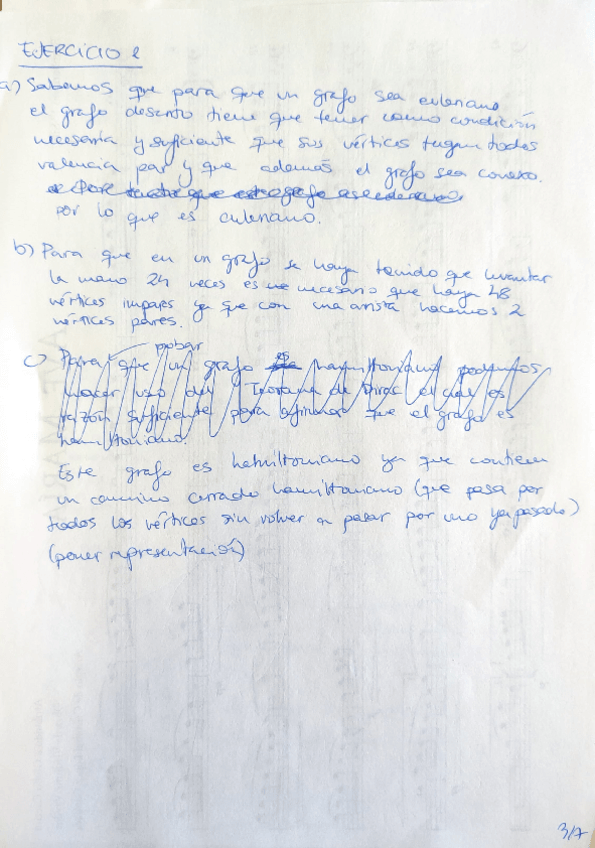 EJERCICIO 2
a) Sabemos que para que un grafo sea euleriano
el grafo descrito tiene que tener como condición
necesaria y suficiente que sus vértices tengan todos
valencia par y que además el grafo sea conexo.
por lo que es euleriano.
b) Para que en un grafo se haya tenido que levantar
la mano 24 veces es necesario que haya 48
vértices impares ya que con una arista hacemos 2
vértices pares.
probar
c) Para que un grafo es hamiltoniano podemos
hacer uso del Teorema de Dirac el cual es
razón suficiente para afirmar que el grafo es
hamiltoniano.
Este grafo es hamiltoniano ya que contiene
un camino cerrado hamiltoniano (que pasa por
todos los vértices sin volver a pasar por uno ya pasado)
(poner representación)
3/7